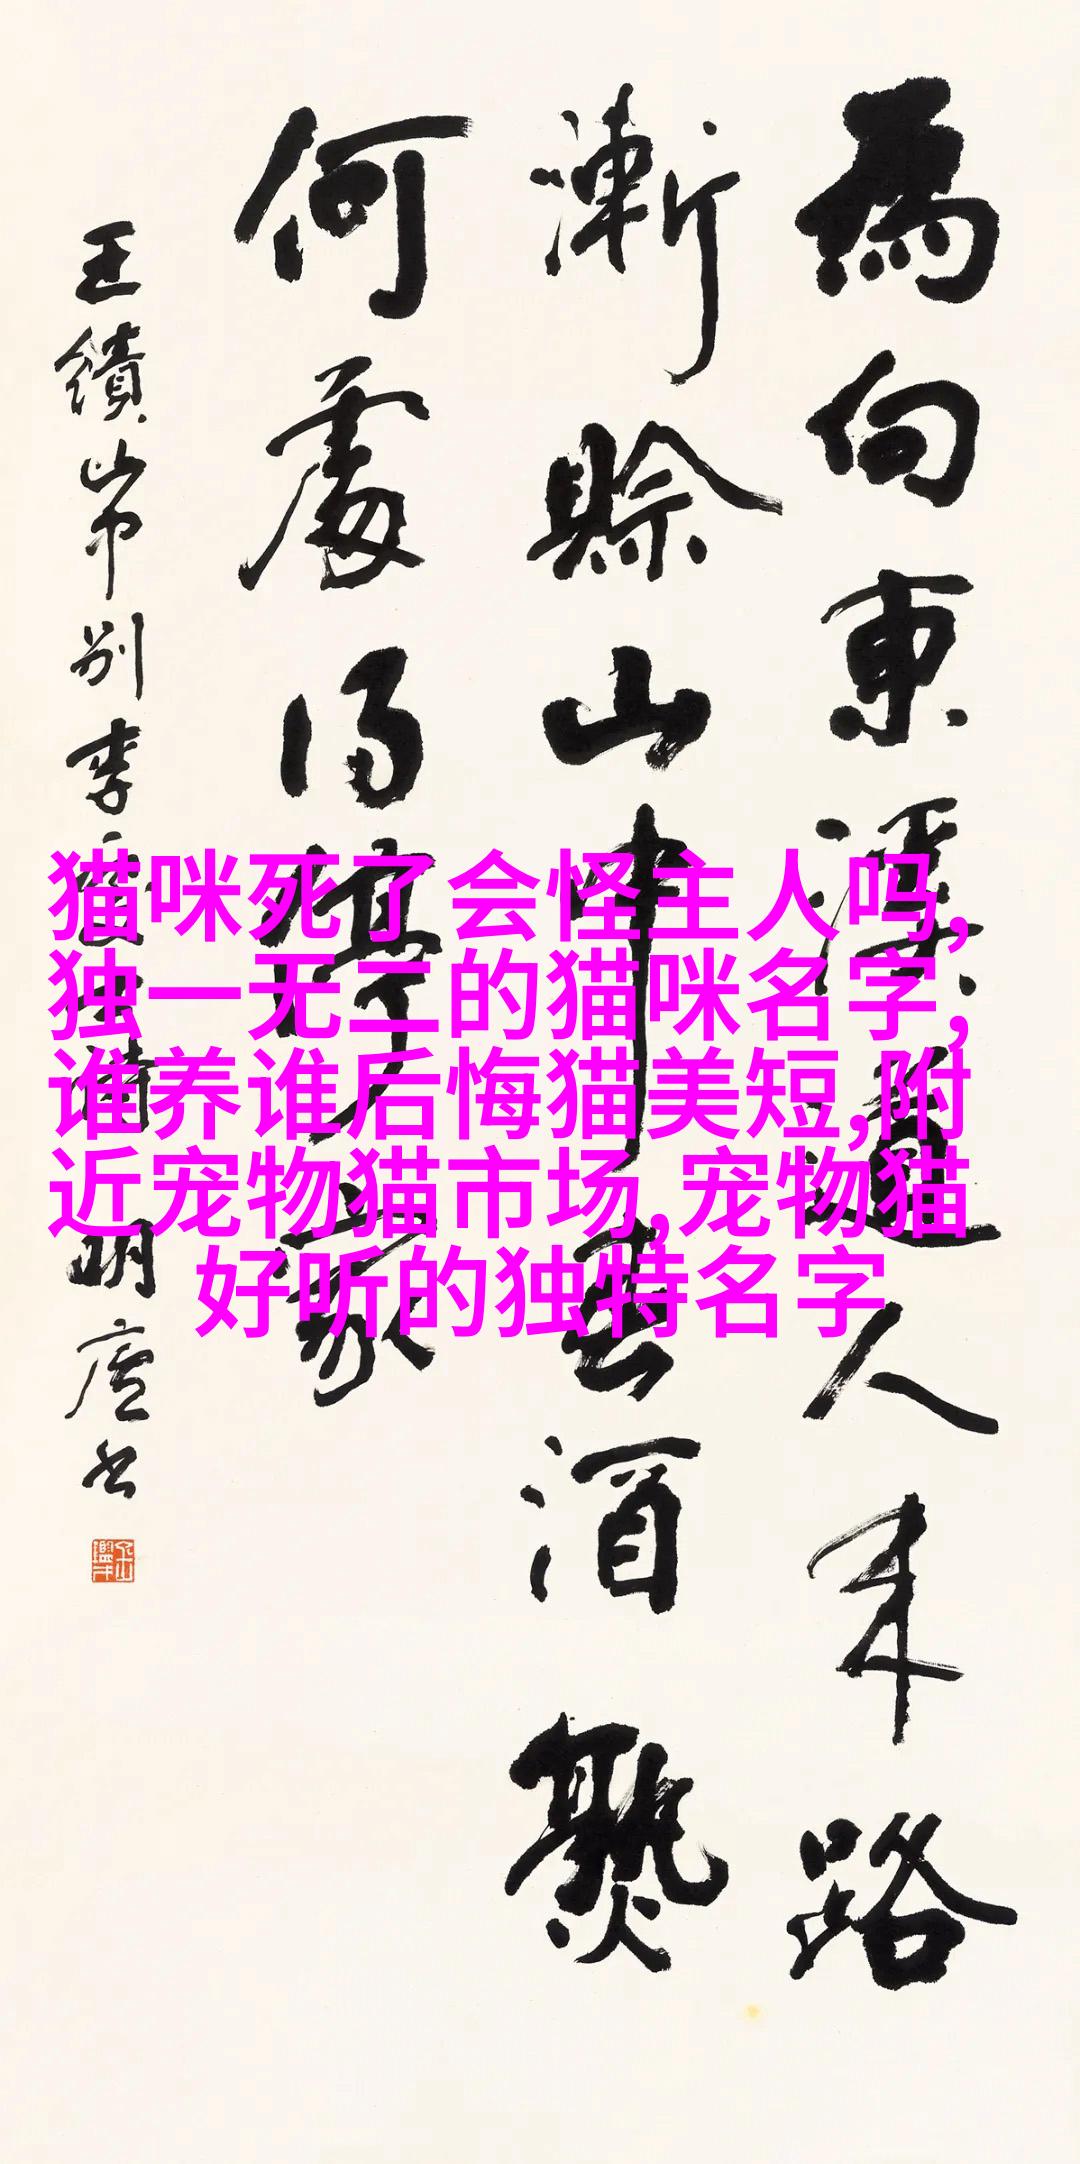 為向東溪道人來路
漸賒山中春酒熟
何處得停家
王績山中別李
明廬書
猫咪死了会怪主人吗,
独一无二的猫咪名字,
谁养谁后悔猫美短,附
近宠物猫市场,宠物猫
好听的独特名字